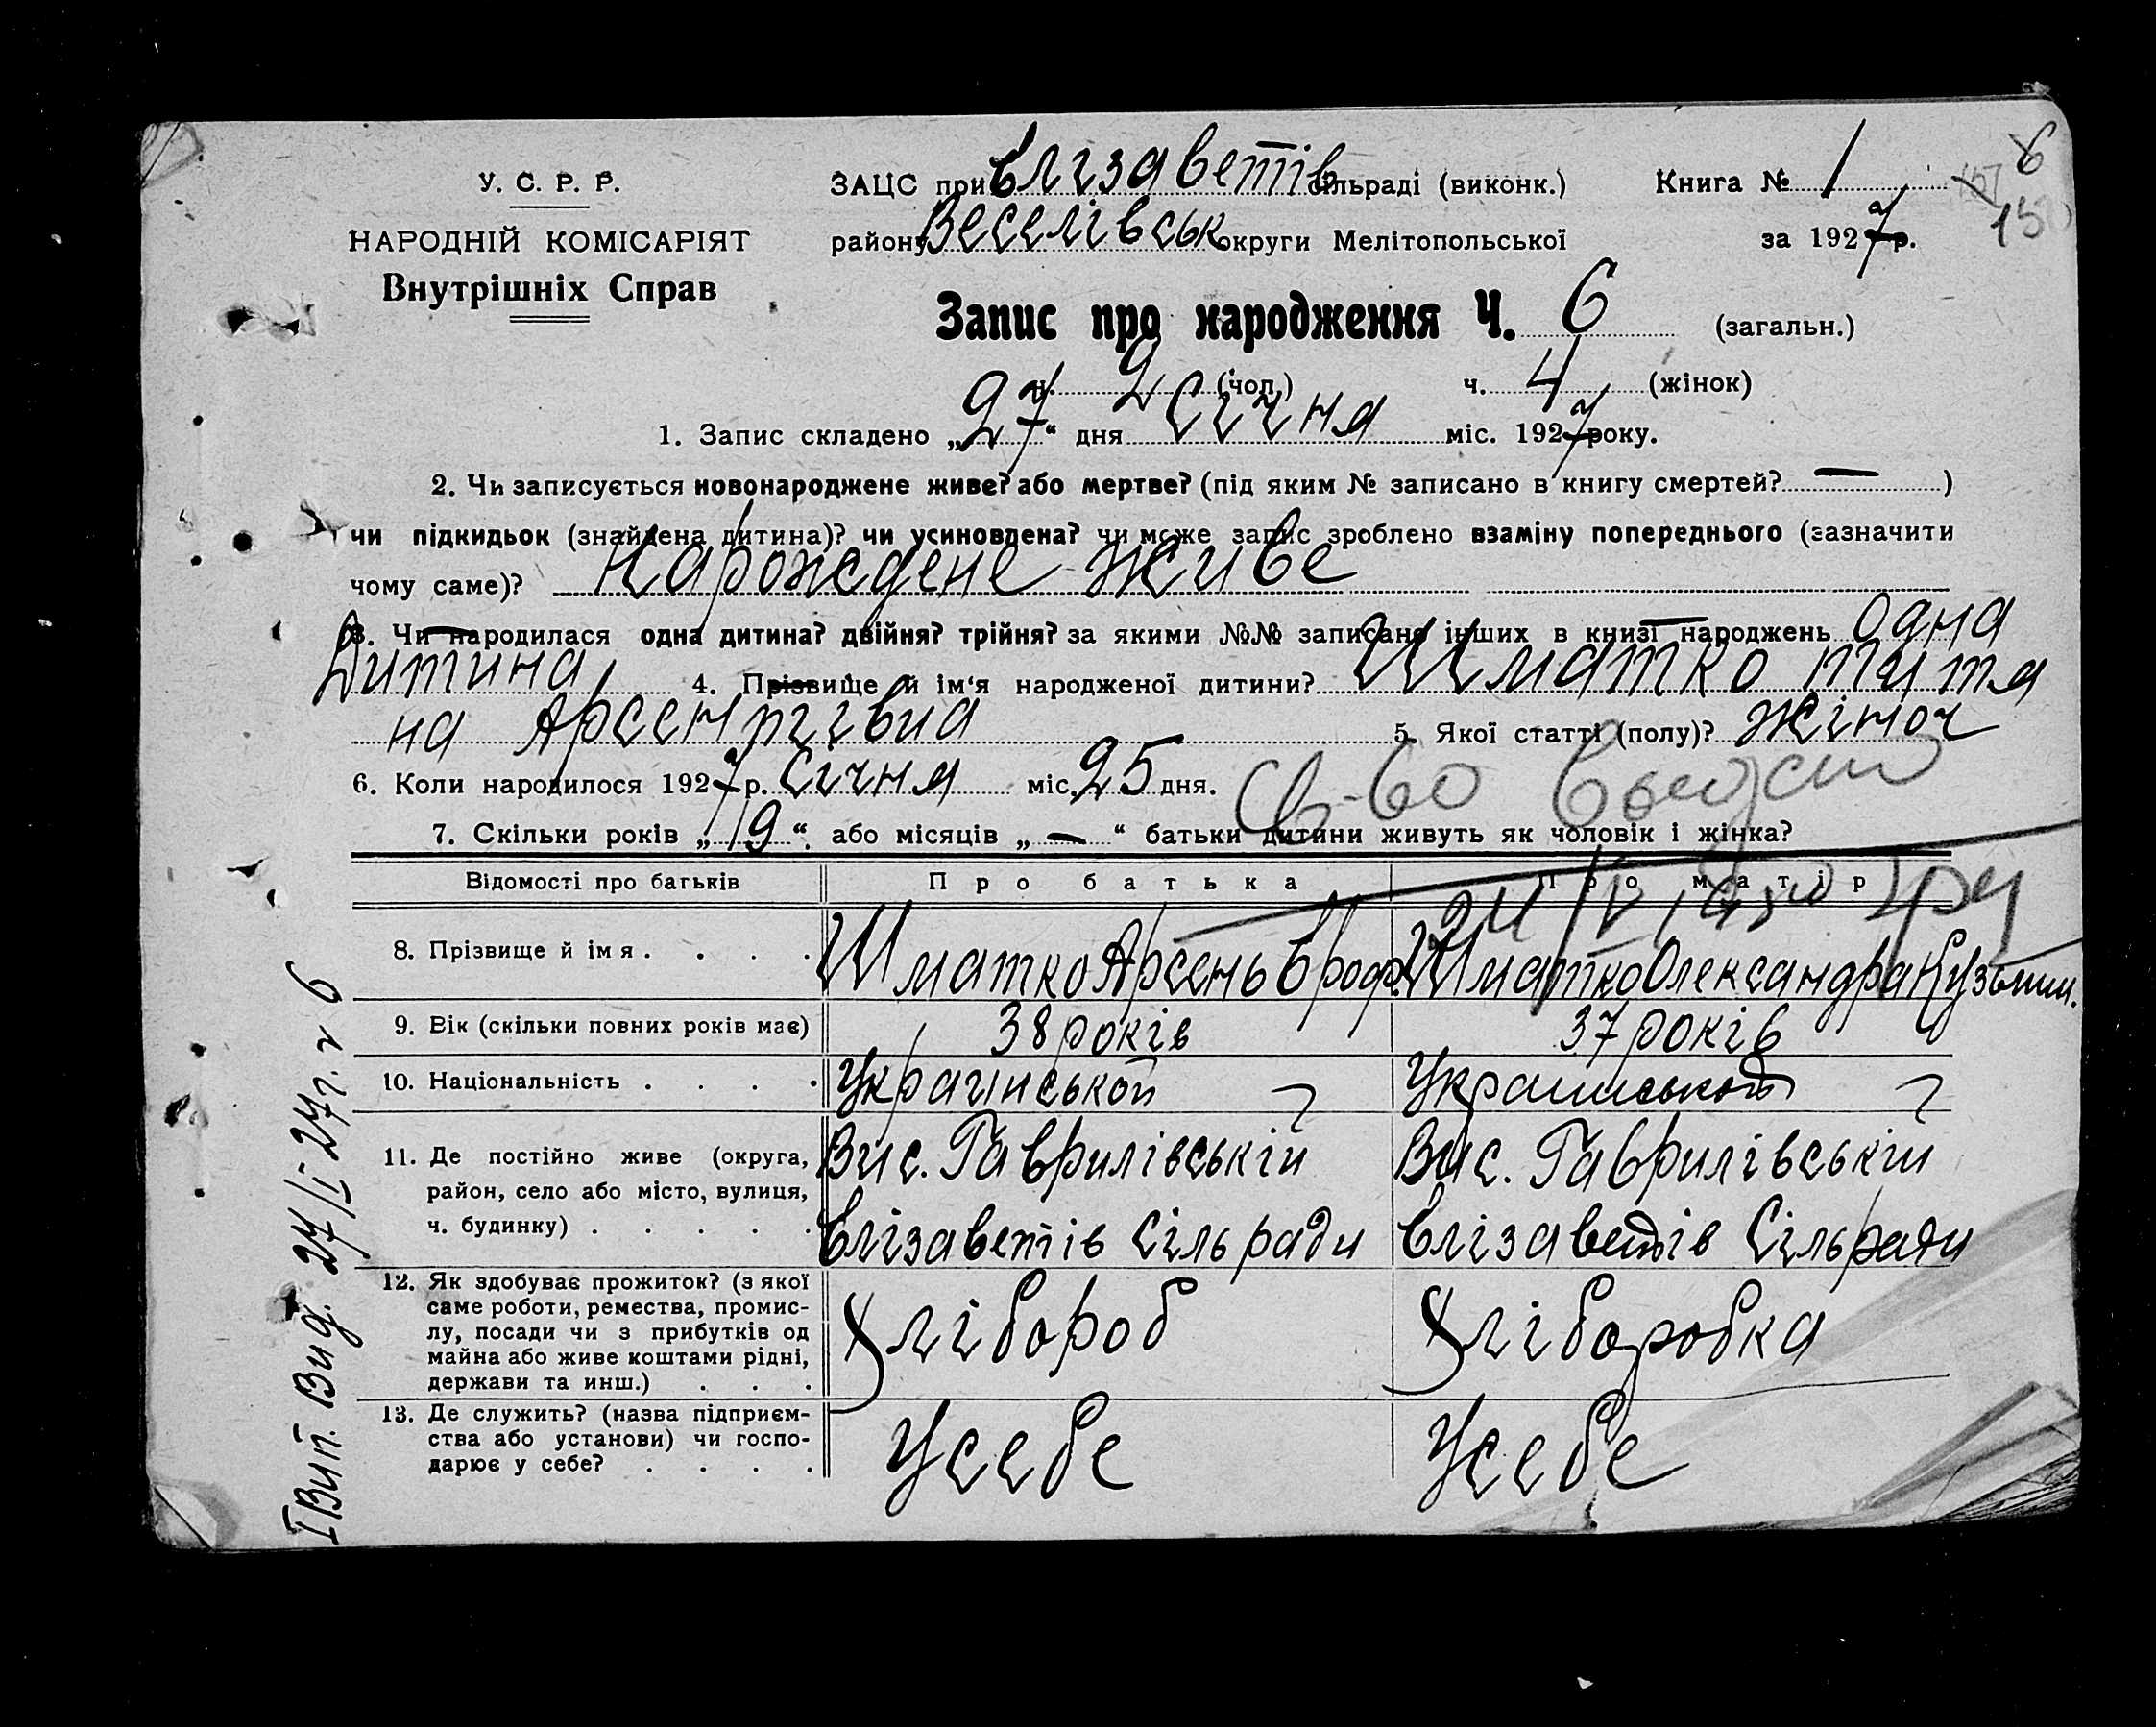 У. С. Р. Р.
НАРОДНІЙ КОМІСАРІЯТ
Внутрішніх Справ
ЗАЦС при Єлізаветів сільраді (виконк.)
району Веселівськ округи Мелітопольської
Книга № 1
6
за 1927 р.
Запис про народження Ч. 6 (загальн.)
ч. 2 (чол.) ч. 4 (жінок)
1. Запис складено „27“ дня Січня міс. 1927 року.
2. Чи записується новонароджене живе? або мертве? (під яким № записано в книгу смертей? — )
чи підкидьок (знайдена дитина)? чи усиновлена? чи може запис зроблено взаміну попереднього (зазначити
чому саме)? Нарождене живе
3. Чи народилася одна дитина? двійня? трійня? за якими №№ записано інших в книзі народжень Одна
Дитина 4. Прізвище й ім‘я народженої дитини? Шматко Титя
на Арсентіївна 5. Якої статті (полу)? Жіноч
6. Коли народилося 1927 р. Січня міс. 25 дня.
Св-во
7. Скільки років „19“ або місяців „—“ батьки дитини живуть як чоловік і жінка?
Відомості про батьків Про батька Про матір
8. Прізвище й ім я . . . . Шматко Арсень Єроф. Шматко Олександра Кузьмин.
9. Вік (скільки повних років має) 38 років 37 років
10. Національність . . . . Української Української
11. Де постійно живе (округа, район, село або місто, вулиця, ч. будинку) . . . . .
Вис. Гаврилівській Вис. Гаврилівській
Єлізаветів Сільради Єлізаветів Сільради
12. Як здобуває прожиток? (з якої
саме роботи, ремества, промис-
лу, посади чи з прибутків од
майна або живе коштами рідні,
держави та инш.) . . .
Хлібороб Хлiборобка
13. Де служить? (назва підприєм-
ства або установи) чи госпо-
дарює у себе? . . . .
Усебе Усебе
І Вип. Вид. 27/I 27 р. № 6